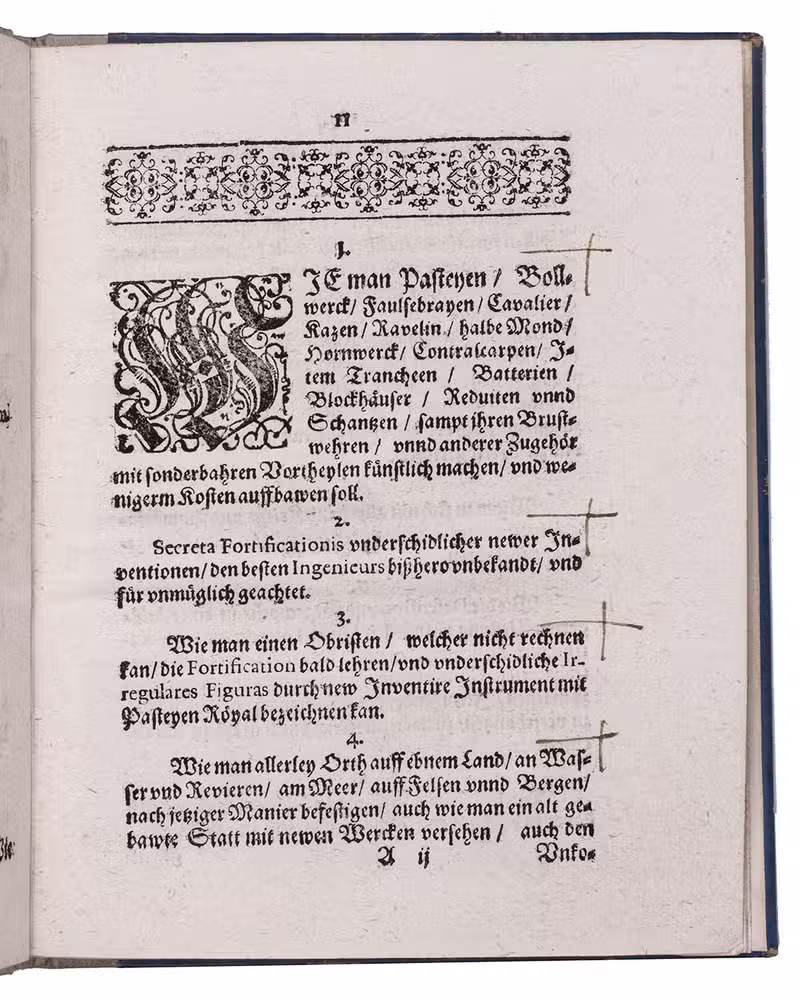 II
1.
WJE man Pasteyen / Boll-
werck / Faulsebrayen / Cavalier /
Kazen / Ravelin / halbe Mond /
Hornwerck / Contralcarpen / J-
tem Trancheen / Batterien /
Blockhäuser / Reduiten vnnd
Schantzen / sampt jhren Brust-
wehren / vnnd anderer Zugehör
mit sonderbahren Vortheylen künstlich machen / vnd we-
nigerm Kosten auffbawen soll.
2.
Secreta Fortificationis vnderschidlicher newer Jn-
ventionen / den besten Ingenieurs bißhero vnbekandt / vnd
für vnmüglich geachtet.
3.
Wie man einen Obristen / welcher nicht rechnen
kan / die Fortification bald lehren / vnd vnderschidliche Ir-
regulares Figuras durch new Jnventire Jnstrument mit
Pasteyen Röyal bezeichnen kan.
4.
Wie man allerley Orth auff ebnem Land / an Was-
ser vnd Revieren / am Meer / auff Felsen vnnd Bergen /
nach jetziger Manier befestigen / auch wie man ein alt ge-
bawte Statt mit newen Wercken versehen / auch den
A ij Vnko-